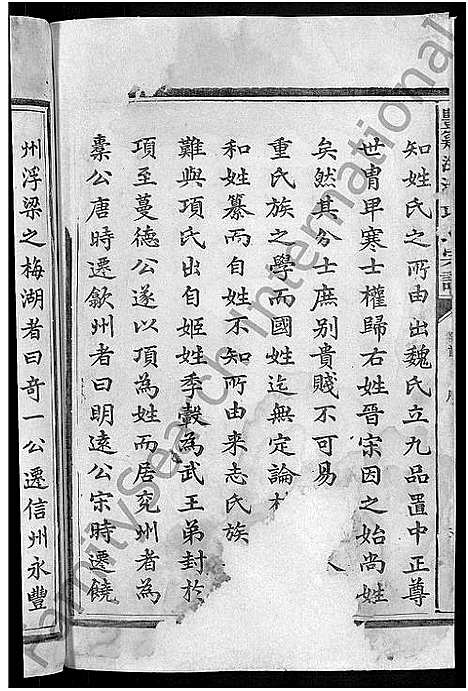 知姓氏之所由出魏氏立九品置中正尊
世冑卑寒士權歸右姓晉宗因之始尚姓
矣然其分士庶别貴賤不可易
重氏族之學而國姓迄無定論
和姓纂而自姓不知所由来志氏族
難與項氏出自姬姓季毂為武王弟封於
項至蔓德公遂以項為姓而居兖州者為
橐公唐時遷歙州者曰明遠公宗時遷饒
州浮梁之梅湖者曰奇一公遷信州永豐
FamilySearch International